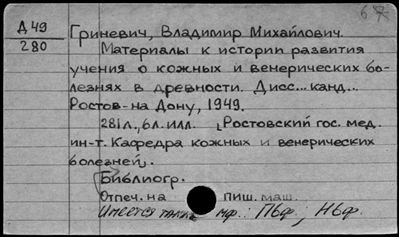 Д 49
280
Гриневич, Владимир Михайлович.
Материалы к истории развития
учения о кожных и венерических бо-
лезнях в древности. Дисс... канд...
Ростов-на Дону, 1949.
281л., 6л. илл. [Ростовский гос. мед.
ин-т. Кафедра кожных и венерических
болезней].
Библиогр.
Отпеч. на пиш. маш.
Имеется также мф.: Пбф.; Нбф.